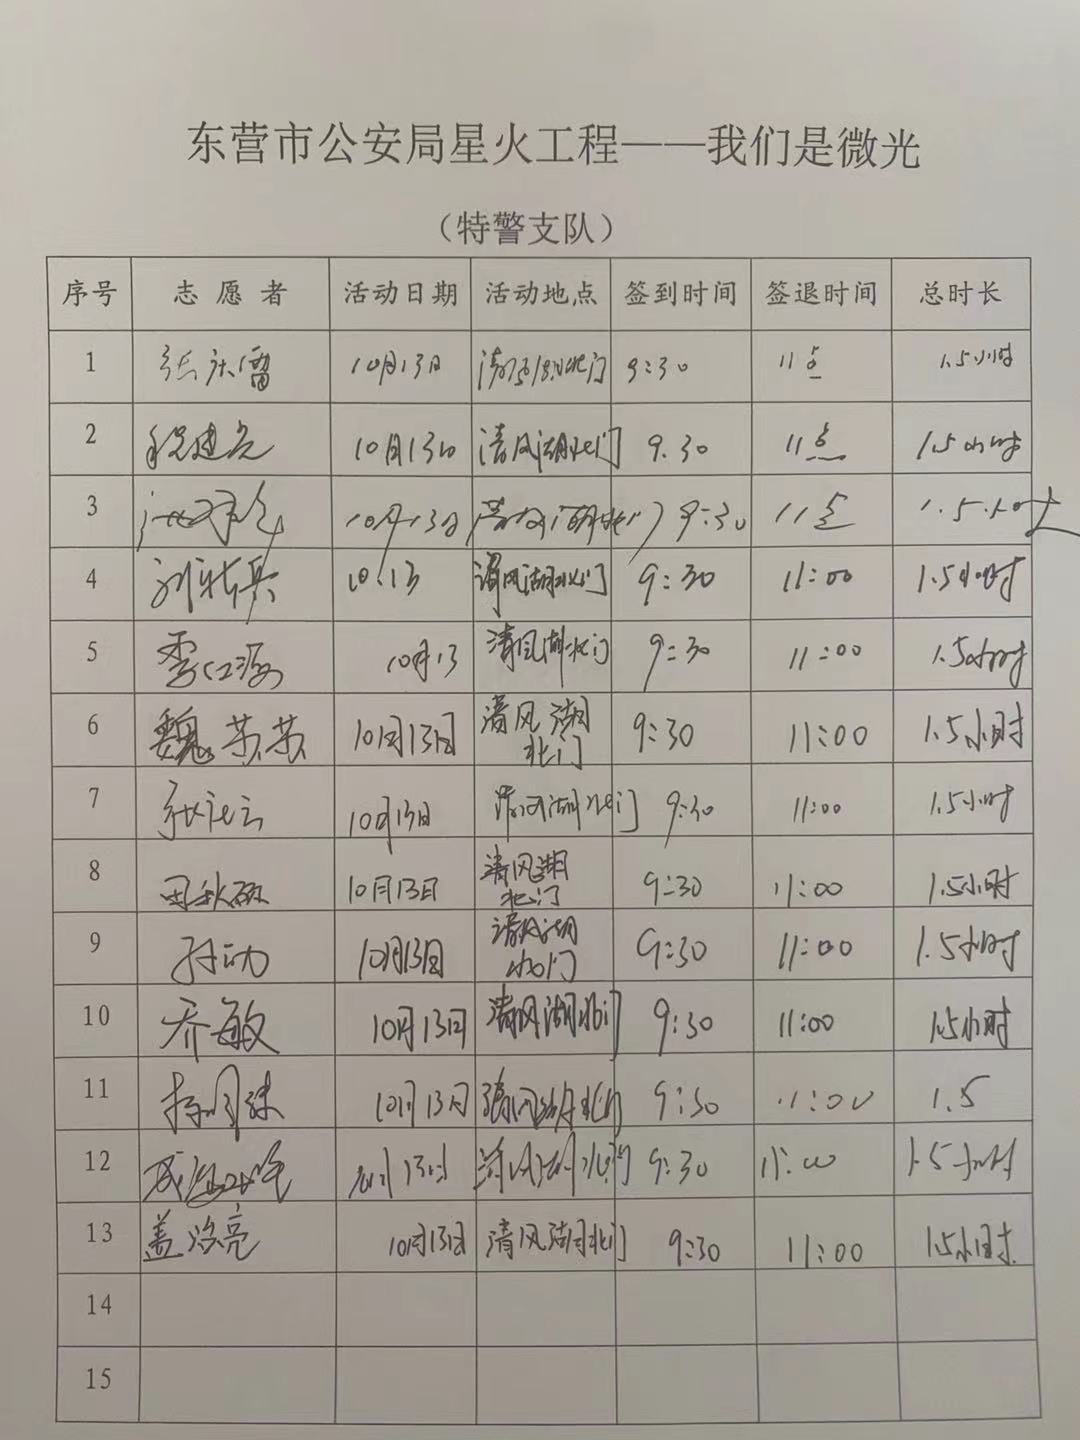 东营市公安局星火工程——我们是微光
（特警支队）
序号 志愿者 活动日期 活动地点 签到时间 签退时间 总时长
1 10月13日 清风湖北门 9:30 11点 1.5小时
2 程建亮 10月13日 清风湖北门 9.30 11点 1.5小时
3 10月13日 清风湖北门 9:30 11点 1.5小时
4 10.13 清风湖北门 9:30 11:00 1.5小时
5 10月13 清风湖北门 9:30 11:00 1.5小时
6 魏芸芸 10月13日 清风湖
北门 9:30 11:00 1.5小时
7 10月13日 清风湖北门 9:30 11:00 1.5小时
8 田秋硕 10月13日 清风湖
北门 9:30 11:00 1.5小时
9 孙功 10月13日 清风湖
北门 9:30 11:00 1.5小时
10 乔敏 10月13日 清风湖北门 9:30 11:00 1.5小时
11 10月13日 清风湖北门 9:30 11:00 1.5
12 10月13日 清风湖北门 9:30 11:00 1.5小时
13 盖洛亮 10月13日 清风湖北门 9:30 11:00 1.5小时
14
15